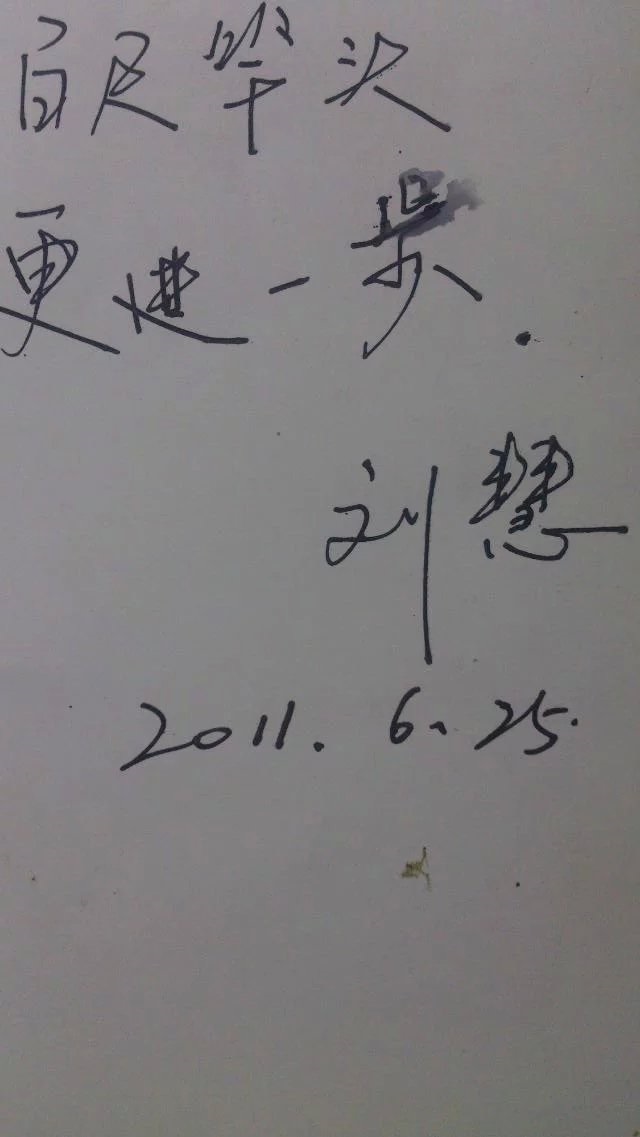 百尺竿头
更进一步.
刘慧
2011.6.25.